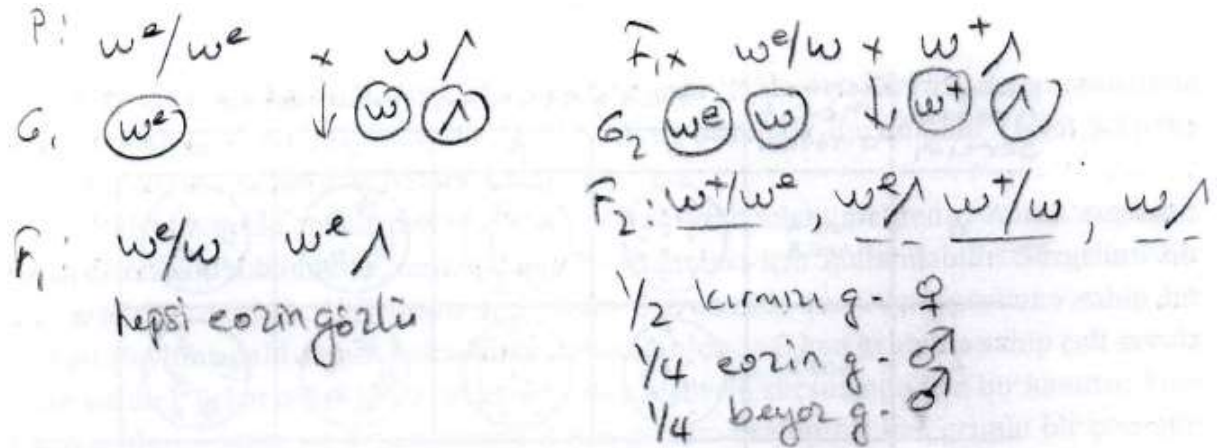 P: wᵉ/wᵉ x w /\
G₁ wᵉ ↓ w /\
F₁: wᵉ/w wᵉ /\
hepsi eozin gözlü
F₁x wᵉ/w x w⁺ /\
G₂ wᵉ w ↓ w⁺ /\
F₂: w⁺/wᵉ, wᵉ /\ w⁺/w, w /\
1/2 kırmızı g. ♀
1/4 eozin g. ♂
1/4 beyaz g. ♂